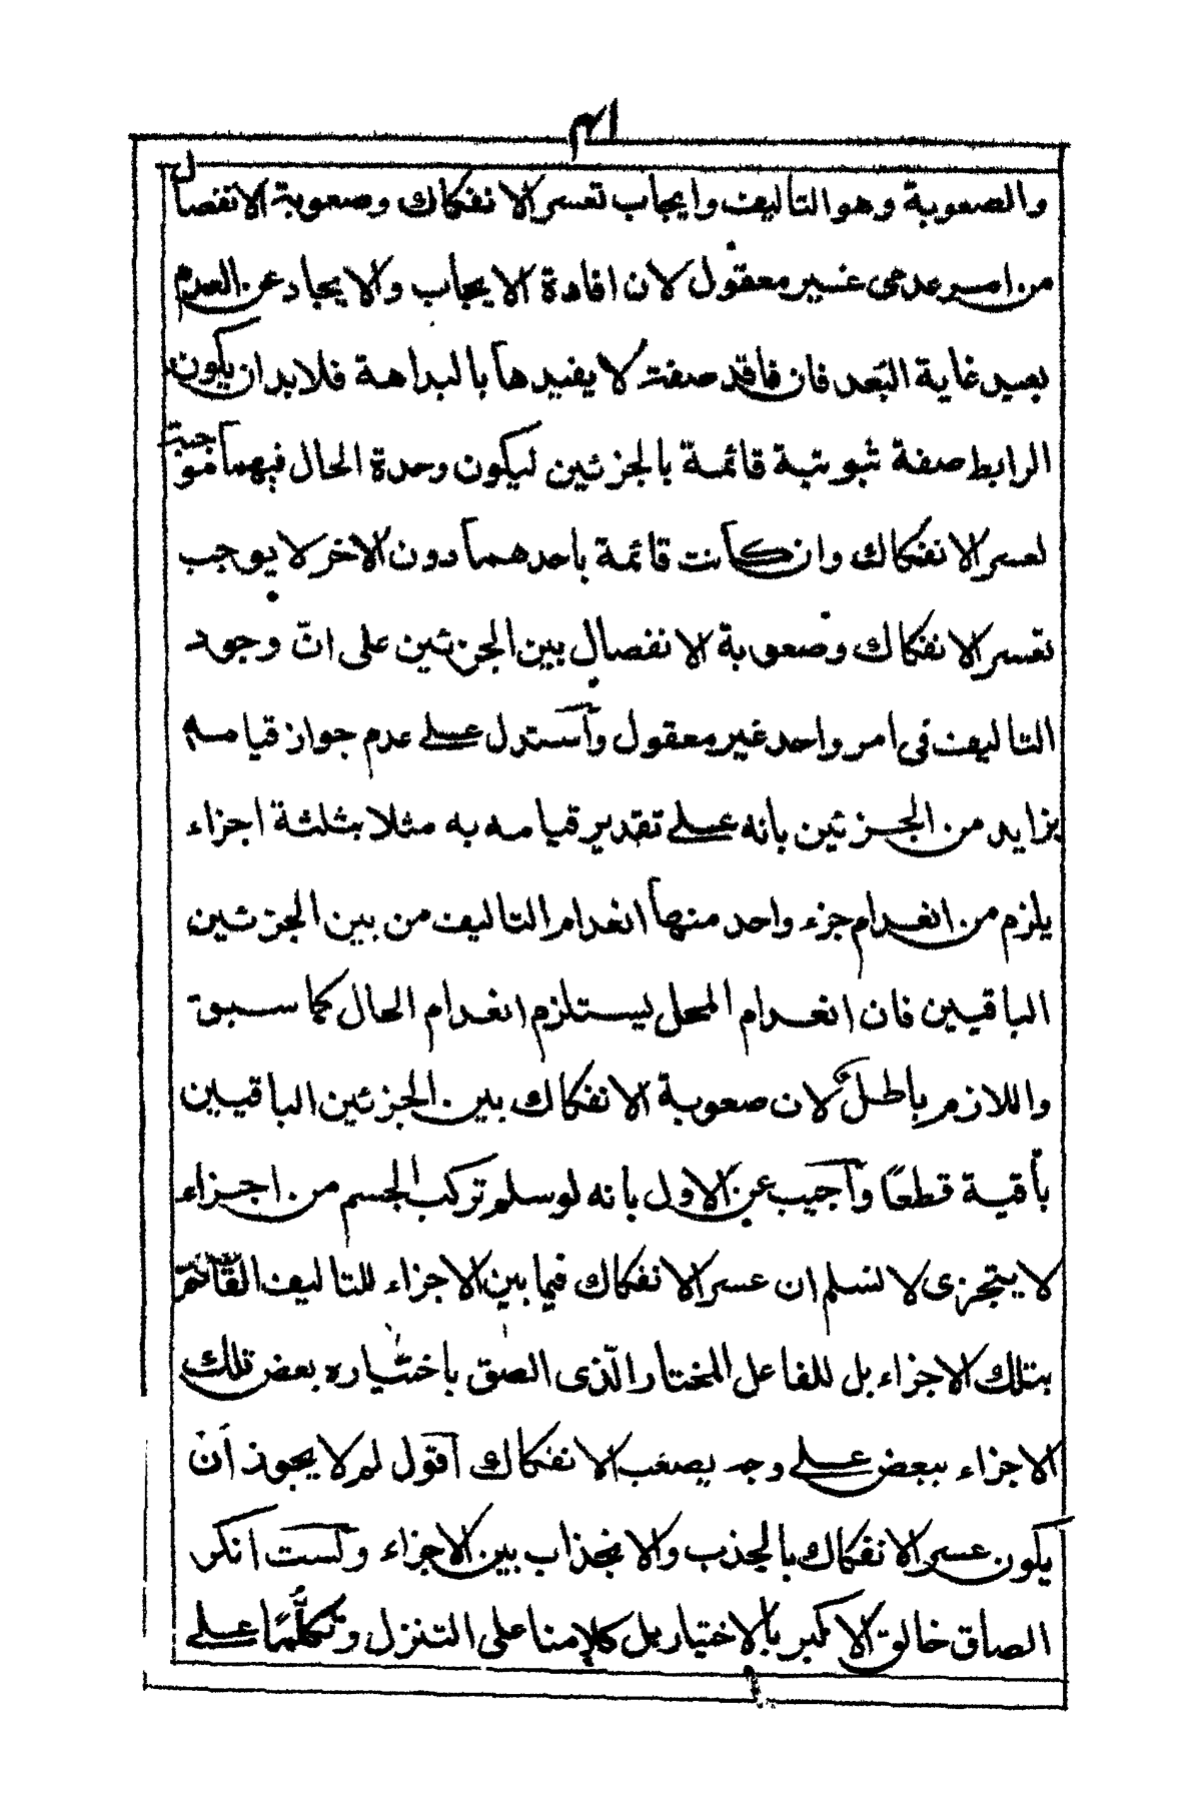 ٤١
والصعوبة وهو التاليف وايجاب تعسر الانفكاك وصعوبة الانفصال
من امر عدمى غير معقول لان افادة الايجاب والايجاد عن العدم
بعيد غاية البعد فان فاقد صفة لا يفيدها بالبداهة فلا بد ان يكون
الرابط صفة ثبوتية قائمة بالجزئين ليكون وحدة الحال فيهما موجبة
لعسر الانفكاك وان كانت قائمة باحدهما دون الاخر لا يوجب
تعسر الانفكاك وصعوبة الانفصال بين الجزئين على انّ وجود
التاليف فى امر واحد غير معقول وآستدل على عدم جواز قيامه
بزايد من الجزئين بانه على تقدير قيامه به مثلا بثلثة اجزاء
يلزم من انعدام جزء واحد منها انعدام التاليف من بين الجزئين
الباقيين فان انعدام المحل يستلزم انعدام الحال كما سبق
واللازم باطل لان صعوبة الانفكاك بين الجزئين الباقيين
باقية قطعًا وآجيب عن الاول بانه لو سلم تركب الجسم من اجزاء
لا يتجزى لا نسلم ان عسر الانفكاك فيما بين الاجزاء للتاليف القائم
بتلك الاجزاء بل للفاعل المختار الّذى الصق باختياره بعض تلك
الاجزاء ببعض على وجه يصعب الانفكاك آقول لم لا يجوز ان
يكون عسر الانفكاك بالجذب والانجذاب بين الاجزاء ولست انكر
الصاق خالق الاكبر بالاختيار بل كلامنا على التنزل وتكلّمنا على